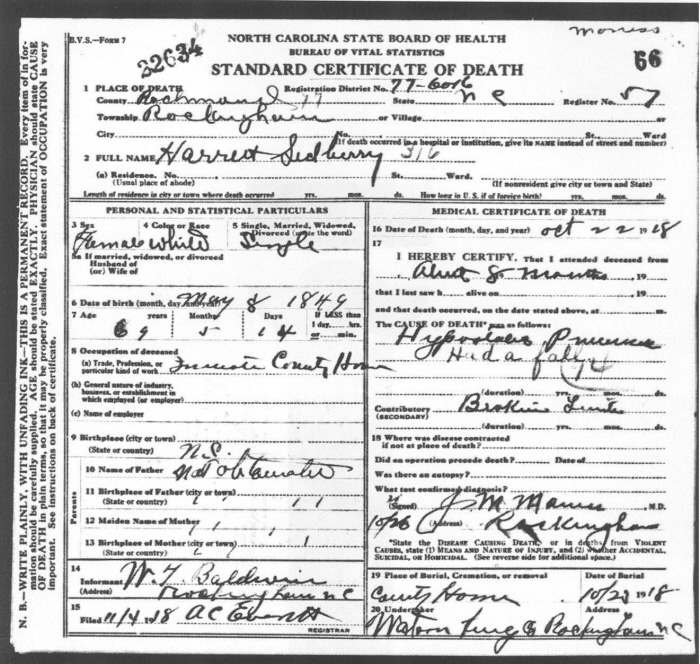 B.V.S.—FORM 7
22634
NORTH CAROLINA STATE BOARD OF HEALTH
BUREAU OF VITAL STATISTICS
STANDARD CERTIFICATE OF DEATH
66
N. B.—WRITE PLAINLY, WITH UNFADING INK—THIS IS A PERMANENT RECORD. Every item of information should be carefully supplied. AGE should be stated EXACTLY. PHYSICIAN should state CAUSE OF DEATH in plain terms, so that it may be properly classified. Exact statement of OCCUPATION is very important. See instructions on back of certificate.
1 PLACE OF DEATH Registration District No. 77-6016
County Richmond 77 State N C Register No. 57
Township Rockingham or Village or
City No. St. Ward
(If death occurred in a hospital or institution, give its NAME instead of street and number)
2 FULL NAME Harrett Sedberry 316
(a) Residence. No. St. Ward.
(Usual place of abode) (If nonresident give city or town and State)
Length of residence in city or town where death occurred yrs. mos. ds. How long in U. S. if of foreign birth? yrs. mos. ds.
PERSONAL AND STATISTICAL PARTICULARS
3 Sex 4 Color or Race 5 Single, Married, Widowed, Divorced (write the word)
Female White Single
5a If married, widowed, or divorced
Husband of
(or) Wife of
6 Date of birth (month, day, and year) May 8 1849
7 Age years Months Days If LESS than 1 day, hrs. or min.
69 5 14
8 Occupation of deceased
(a) Trade, Profession, or particular kind of work Inmate County Home
(b) General nature of industry, business, or establishment in which employed (or employer)
(c) Name of employer
9 Birthplace (city or town)
(State or country) N.S.
10 Name of Father Not obtainable
Parents
11 Birthplace of Father (city or town)
(State or country)
12 Maiden Name of Mother
13 Birthplace of Mother (city or town)
(State or country)
14
Informant W. T. Baldwin
(Address) Rockingham N C
15
Filed 11/4 1918 A C Everett
REGISTRAR
MEDICAL CERTIFICATE OF DEATH
16 Date of Death (month, day, and year) Oct 22 1918
17
I HEREBY CERTIFY, That I attended deceased from
About 8 months, 19
that I last saw h alive on , 19
and that death occurred, on the date stated above, at m.
The CAUSE OF DEATH* was as follows:
Had a fall
(duration) yrs. mos. ds.
Contributory
(SECONDARY)
(duration) yrs. mos. ds.
18 Where was disease contracted
if not at place of death?
Did an operation precede death? Date of
Was there an autopsy?
What test confirmed diagnosis?
(Signed) J M Maness M.D.
10/26 (Address) Rockingham
*State the DISEASE CAUSING DEATH, or in deaths from VIOLENT CAUSES, state (1) MEANS AND NATURE OF INJURY, and (2) whether ACCIDENTAL, SUICIDAL, or HOMICIDAL. (See reverse side for additional space.)
19 Place of Burial, Cremation, or removal Date of Burial
County Home 10/23 1918
20 Undertaker Address
Watson Furg Co Rockingham N C